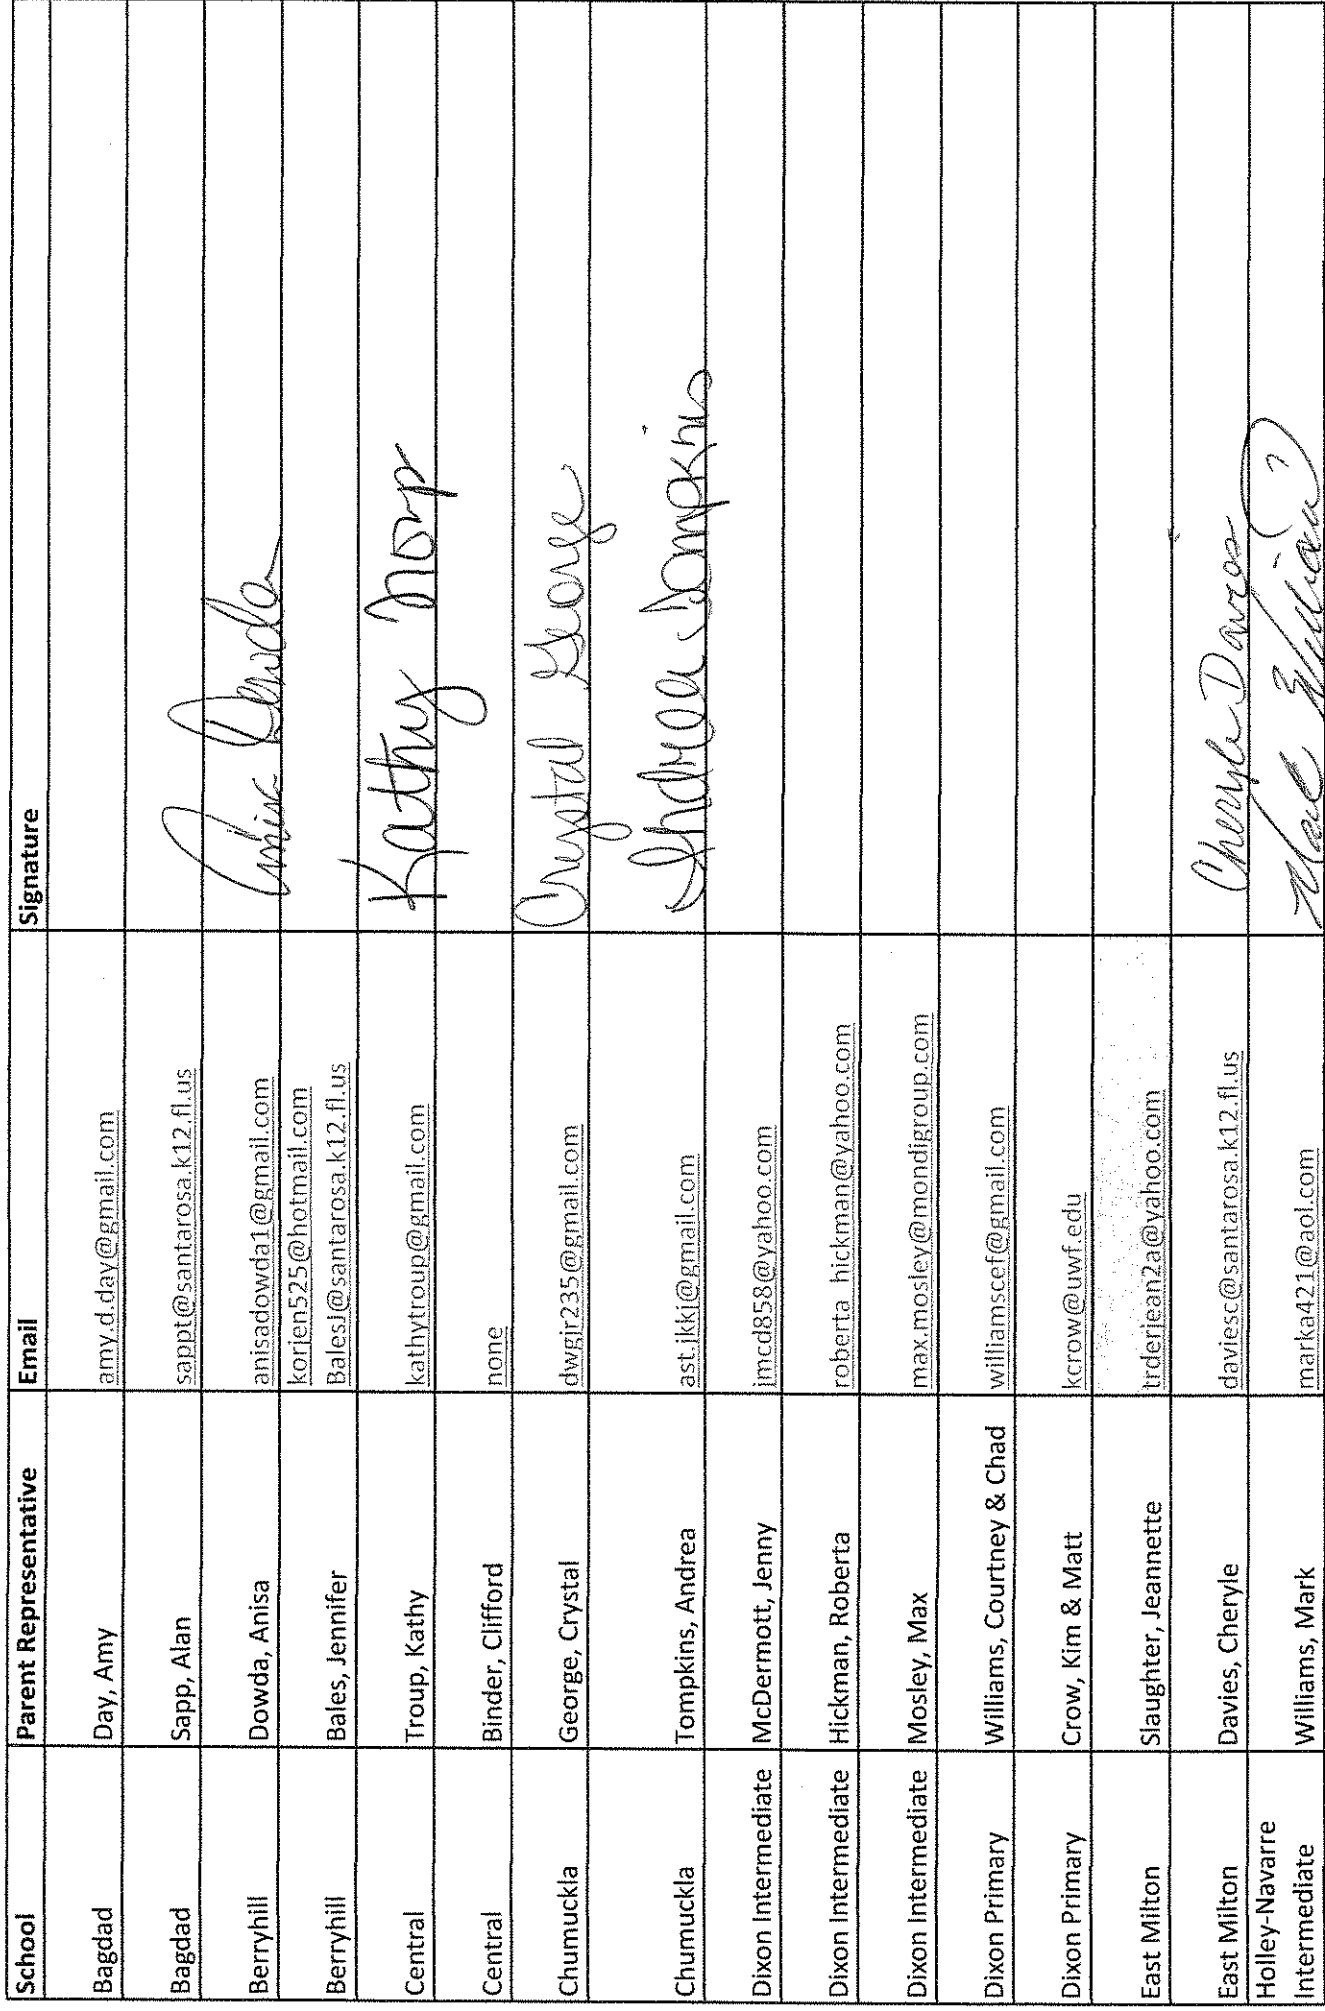 School Parent Representative Email Signature
Bagdad Day, Amy amy.d.day@gmail.com
Bagdad Sapp, Alan sappt@santarosa.k12.fl.us
Berryhill Dowda, Anisa anisadowda1@gmail.com Anisa Dowda
korjen525@hotmail.com
Berryhill Bales, Jennifer BalesJ@santarosa.k12.fl.us
Central Troup, Kathy kathytroup@gmail.com Kathy Troup
Central Binder, Clifford none
Chumuckla George, Crystal dwgjr235@gmail.com Crystal George
Chumuckla Tompkins, Andrea ast.jkki@gmail.com Andrea Tompkins
Dixon Intermediate McDermott, Jenny jmcd858@yahoo.com
Dixon Intermediate Hickman, Roberta roberta_hickman@yahoo.com
Dixon Intermediate Mosley, Max max.mosley@mondigroup.com
Dixon Primary Williams, Courtney & Chad williamscef@gmail.com
Dixon Primary Crow, Kim & Matt kcrow@uwf.edu
East Milton Slaughter, Jeannette trderjean2a@yahoo.com
East Milton Davies, Cheryle daviesc@santarosa.k12.fl.us Cheryle Davies
Holley-Navarre
Intermediate Williams, Mark marka421@aol.com Mark Williams